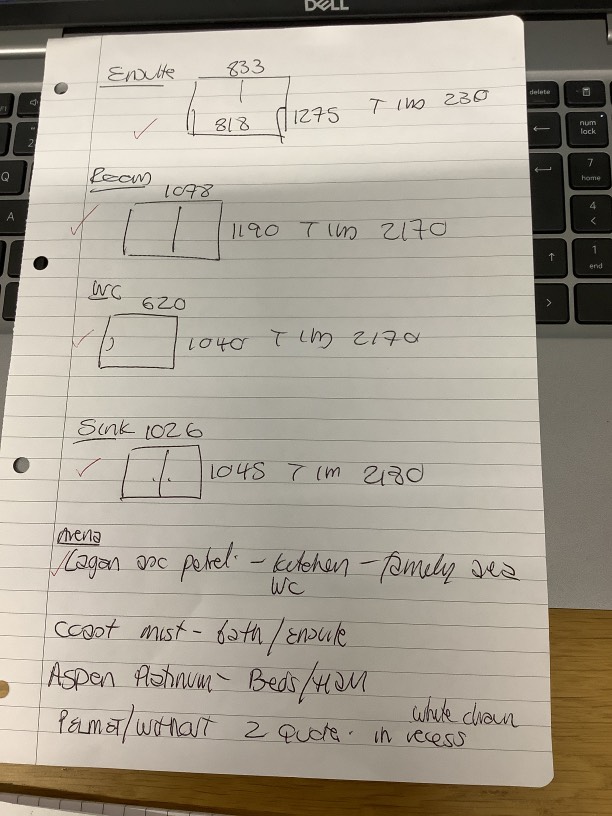 DELL
delete
num
lock
7
home
4
1
end
Q
A
Ensuite 833
818 1275 T IM 230
Room
1078
1190 T IM 2170
WC
620
1040 T IM 2170
Sink 1026
1045 T IM 2180
Arena
Lagan petrel - kitchen - family area
WC
coast mist - bath/Ensuite
Aspen Platinum - Beds/Hall
/without 2 Quote. in recess
white chain